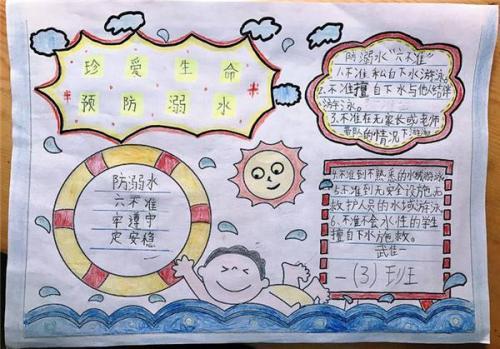 珍爱生命
预防溺水
防溺水“六不准”
1.不准私自下水游泳
2.不准擅自下水与他人结伴
游泳。
3.不准在无家长或老师
带队的情况下游泳
防溺水
六不准
牢遵守
定安稳
4.不准到不熟悉的水域游泳
5.不准到无安全设施、无
救护人员的水域游泳
6.不准不会水性的学生
擅自下水施救。
一(3)班